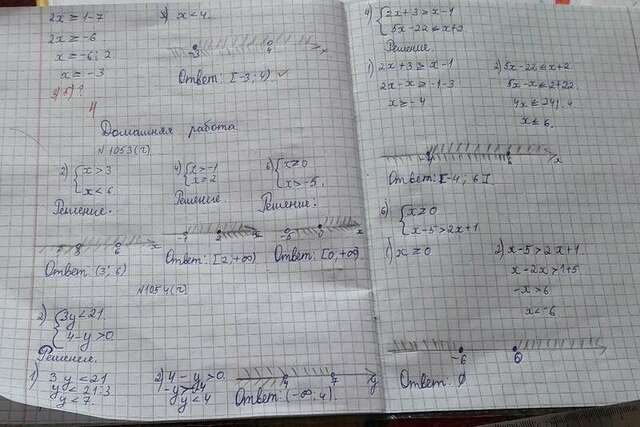 2x ≥ 1-7
2x ≥ -6
x = -6:2
x ≥ -3
3) x < 4.
-3 4 x
Ответ: [-3; 4) ✓
4
Домашняя работа.
N 1053(г)
2) {x > 3
x < 6.
Решение.
3 6 x
Ответ (3; 6)
4) {x > -1
x ≥ 2
Решение.
-1 2 x
Ответ: [2; +∞)
6) {x ≥ 0
x > -5.
Решение.
-5 0 x
Ответ: [0; +∞)
N 1054(г)
2) {3y < 21.
4-y > 0.
Решением.
1) 3y < 21
y < 21:3
y < 7.
2) 4-y > 0.
-y > -4
y < 4
4 7 y
Ответ: (-∞; 4).
4) {2x+3 > x-1
5x-22 ≤ x+2
Решение.
1) 2x+3 ≥ x-1
2x-x ≥ -1-3
x ≥ -4
2) 5x-22 ≤ x+2
5x-x ≤ 2+22.
4x ≤ 24|:4
x ≤ 6.
-4 6 x
Ответ: [-4; 6]
6) {x ≥ 0
x-5 > 2x+1
1) x ≥ 0
2) x-5 > 2x+1.
x-2x > 1+5
-x > 6
x < -6
-6 0
Ответ: ∅